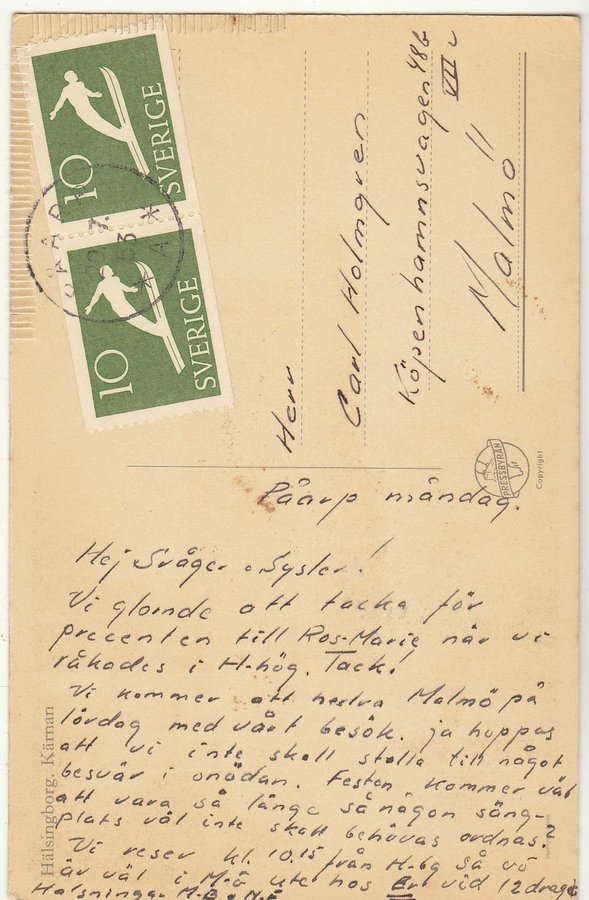 10
SVERIGE
10
SVERIGE
PÅARP
7.
53
A
Herr
Carl Holmgren
Köpenhamnsvägen 48b
VII
Malmö
PRESSBYRÅN
Copyright
Påarp måndag.
Hej Svåger o Syster!
Vi glömde att tacka för
precenten till Ros-Marie när vi
råkades i H-hög. Tack!
Vi kommer att hestra Malmö på
lördag med vårt besök. ja hoppas
att vi inte skall ställa till något
besvär i onödan. Festen kommer väl
att vara så länge så någon säng-
plats väl inte skall behövas ordnas?
Vi reser kl. 10.15 från H-bg så vi
är väl i M-ö ute hos Er vid 12 draget
Hälsningar
Hälsingborg. Kärnan